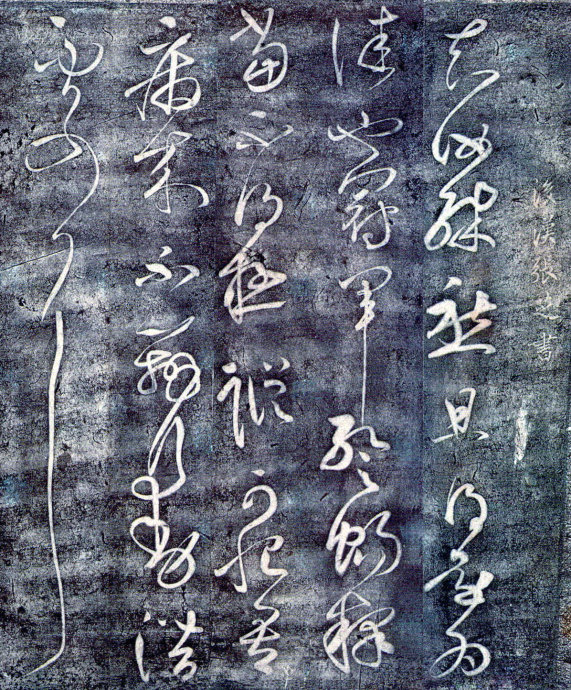 後漢張芝書
知汝殊愁且得還為
佳也冠軍暫暢釋
當不得極蹤可恨吾
病來不辦行動潛
處耳